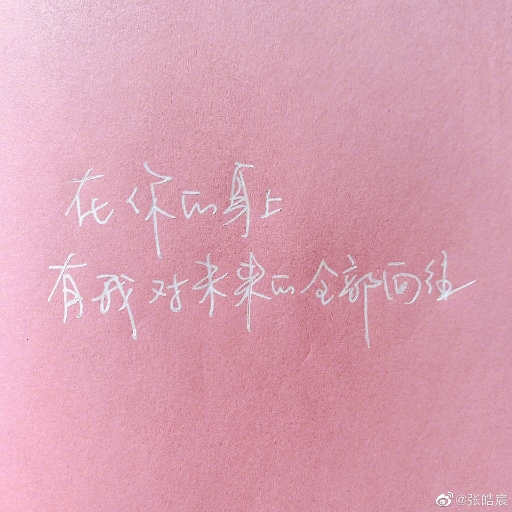 在你的身上
有我对未来的全部向往
@张皓宸